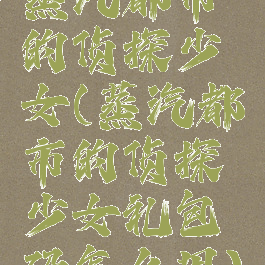 蒸汽都市
的侦探少
女(蒸汽都
市的侦探
少女礼包